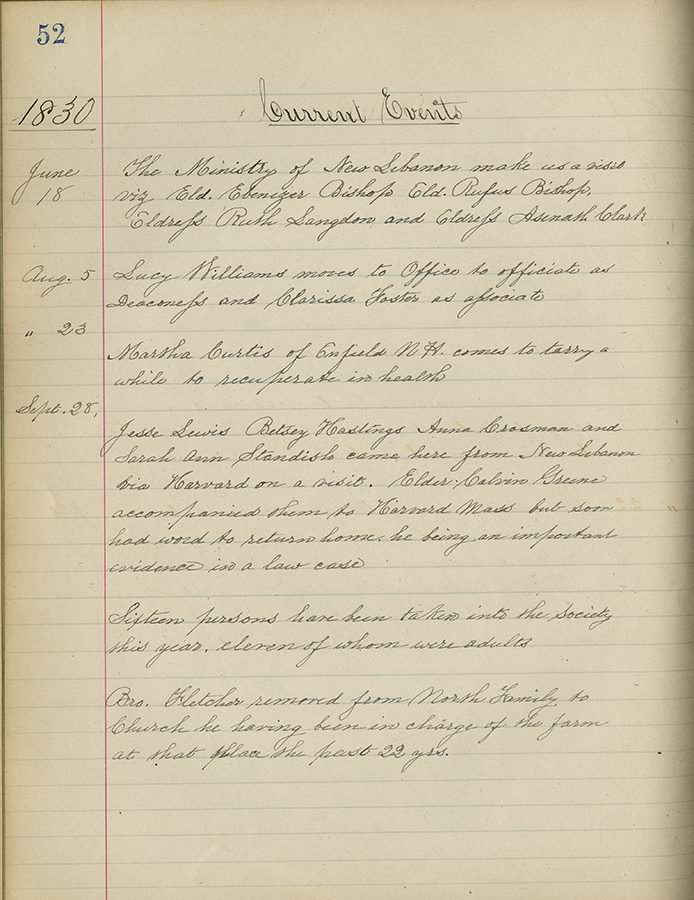 52
1830 Current Events
June 18 The Ministry of New Lebanon make us a visit
viz Eld. Ebenizer Bishop Eld. Rufus Bishop,
Eldress Ruth Langdon and Eldress Asenath Clark
Aug. 5 Lucy Williams moves to Office to officiate as
Deaconess and Clarissa Foster as associate
" 23
Martha Curtis of Enfield N.H. comes to tarry a
while to recuperate in health
Sept. 28,
Jesse Lewis Betsey Hastings Anna Crosman and
Sarah Ann Standish came here from New Lebanon
via Harvard on a visit. Elder Calvin Greene
accompanied them to Harvard Mass but soon
had word to return home. he being an important
evidence in a law case
Fifteen persons have been taken into the Society
this year. eleven of whom were adults
Bro. Fletcher removed from North Family to
Church he having been in charge of the farm
at that place the past 22 yrs.